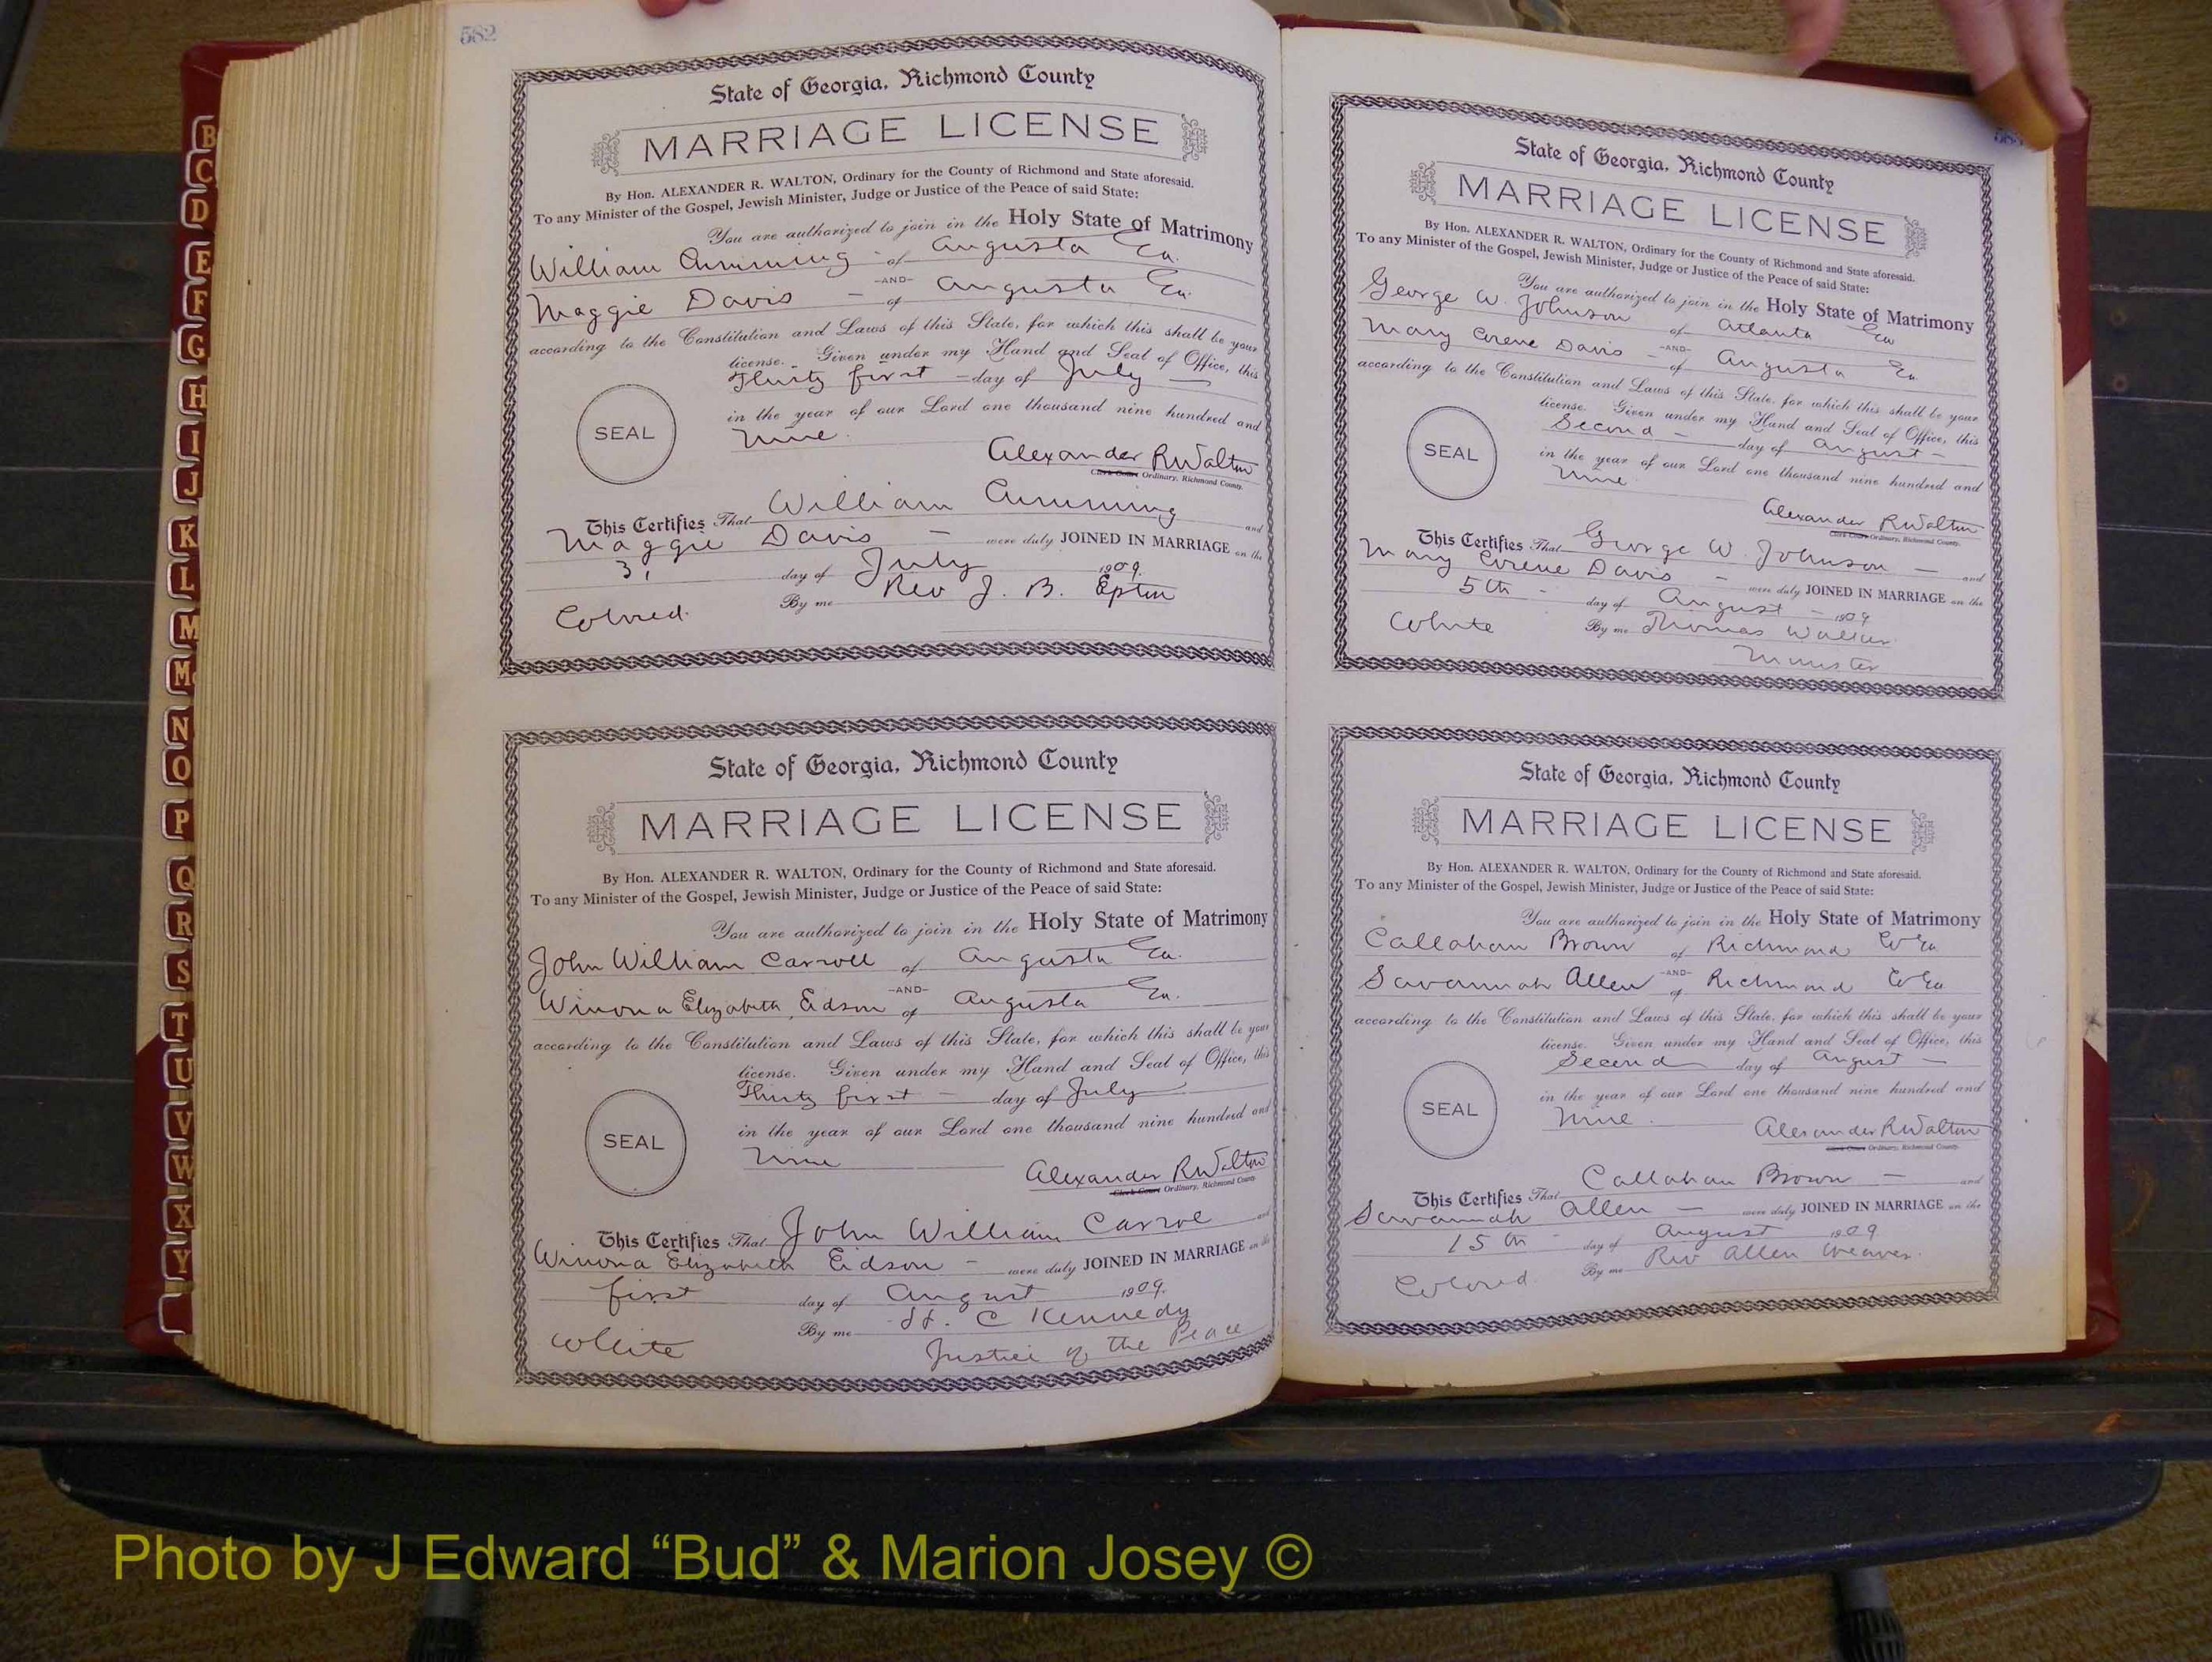 B
C
D
E
F
G
H
I
J
K
L
M
Mc
N
O
P
Q
R
S
T
U
V
W
X
Y
582
State of Georgia, Richmond County
MARRIAGE LICENSE
By Hon. ALEXANDER R. WALTON, Ordinary for the County of Richmond and State aforesaid.
To any Minister of the Gospel, Jewish Minister, Judge or Justice of the Peace of said State:
You are authorized to join in the Holy State of Matrimony
William Cumming of Augusta Ga.
-AND-
Maggie Davis - of Augusta Ga.
according to the Constitution and Laws of this State, for which this shall be your
license. Given under my Hand and Seal of Office, this
Thirty first - day of July -
in the year of our Lord one thousand nine hundred and
SEAL
Nine.
Alexander R Walton
Clerk Court Ordinary, Richmond County.
This Certifies That William Cumming and
Maggie Davis - were duly JOINED IN MARRIAGE on the
31 day of July 1909.
By me Rev J. B. Epton
Colored.
State of Georgia, Richmond County
MARRIAGE LICENSE
By Hon. ALEXANDER R. WALTON, Ordinary for the County of Richmond and State aforesaid.
To any Minister of the Gospel, Jewish Minister, Judge or Justice of the Peace of said State:
You are authorized to join in the Holy State of Matrimony
John William Carroll of Augusta Ga.
-AND-
Winona Elizabeth Eidson of Augusta Ga.
according to the Constitution and Laws of this State, for which this shall be your
license. Given under my Hand and Seal of Office, this
Thirty first - day of July
in the year of our Lord one thousand nine hundred and
SEAL
Nine
Alexander R Walton
Clerk Court Ordinary, Richmond County
This Certifies That John William Carrol and
Winona Elizabeth Eidson - were duly JOINED IN MARRIAGE on the
first day of August 1909.
By me H. C Kennedy
White
Justice of the Peace
State of Georgia, Richmond County
MARRIAGE LICENSE
By Hon. ALEXANDER R. WALTON, Ordinary for the County of Richmond and State aforesaid.
To any Minister of the Gospel, Jewish Minister, Judge or Justice of the Peace of said State:
You are authorized to join in the Holy State of Matrimony
George W. Johnson of Atlanta Ga
-AND-
Mary Davis - of Augusta Ga.
according to the Constitution and Laws of this State, for which this shall be your
license. Given under my Hand and Seal of Office, this
Second - day of August -
in the year of our Lord one thousand nine hundred and
SEAL
Nine
Alexander R Walton
Clerk Court Ordinary, Richmond County.
This Certifies That George W. Johnson - and
Mary Davis - were duly JOINED IN MARRIAGE on the
5th - day of August - 1909
White
By me Thomas Walker
Minister
State of Georgia, Richmond County
MARRIAGE LICENSE
By Hon. ALEXANDER R. WALTON, Ordinary for the County of Richmond and State aforesaid.
To any Minister of the Gospel, Jewish Minister, Judge or Justice of the Peace of said State:
You are authorized to join in the Holy State of Matrimony
Callahan Brown of Richmond Co Ga
-AND-
Savannah Allen of Richmond Co Ga
according to the Constitution and Laws of this State, for which this shall be your
license. Given under my Hand and Seal of Office, this
Second day of August -
in the year of our Lord one thousand nine hundred and
SEAL
Nine.
Alexander R Walton
Clerk Court Ordinary, Richmond County.
This Certifies That Callahan Brown - and
Savannah Allen - were duly JOINED IN MARRIAGE on the
15th - day of August 1909
By me Rev Allen Weaver.
Colored
Photo by J Edward “Bud” & Marion Josey ©